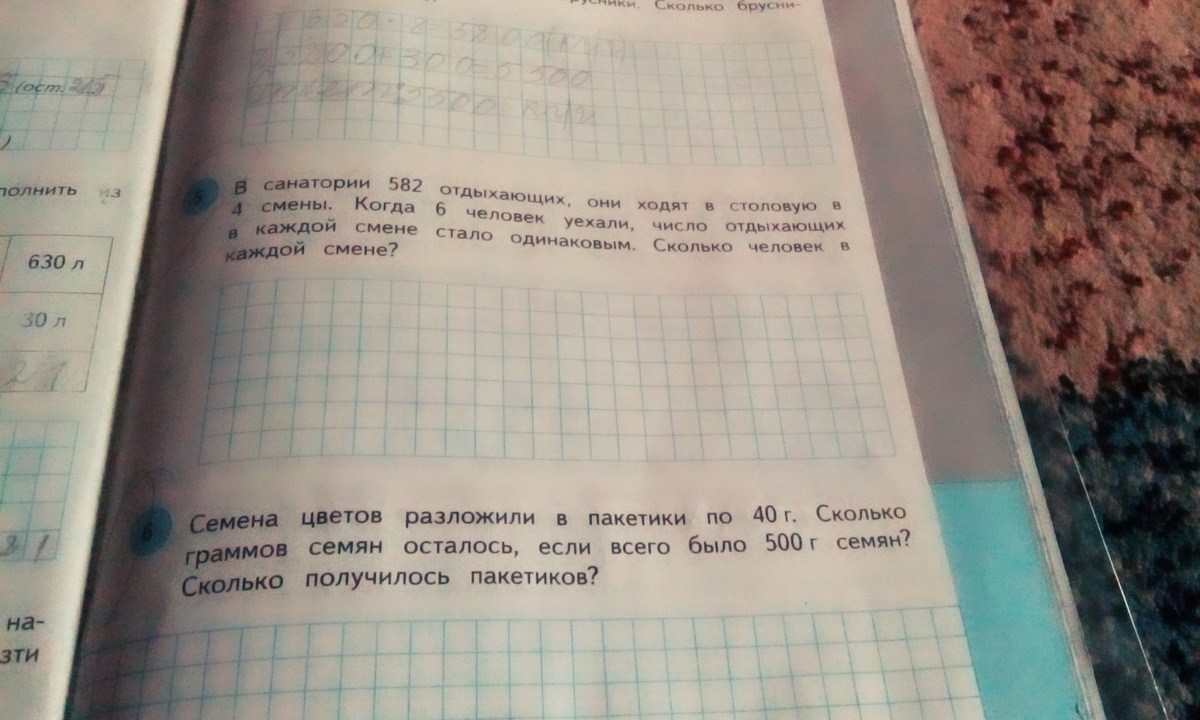 русники. Сколько брусни-
(ост.
полнить из
630 л
30 л
21
31
на-
зти
5 В санатории 582 отдыхающих, они ходят в столовую в
4 смены. Когда 6 человек уехали, число отдыхающих
в каждой смене стало одинаковым. Сколько человек в
каждой смене?
6 Семена цветов разложили в пакетики по 40 г. Сколько
граммов семян осталось, если всего было 500 г семян?
Сколько получилось пакетиков?